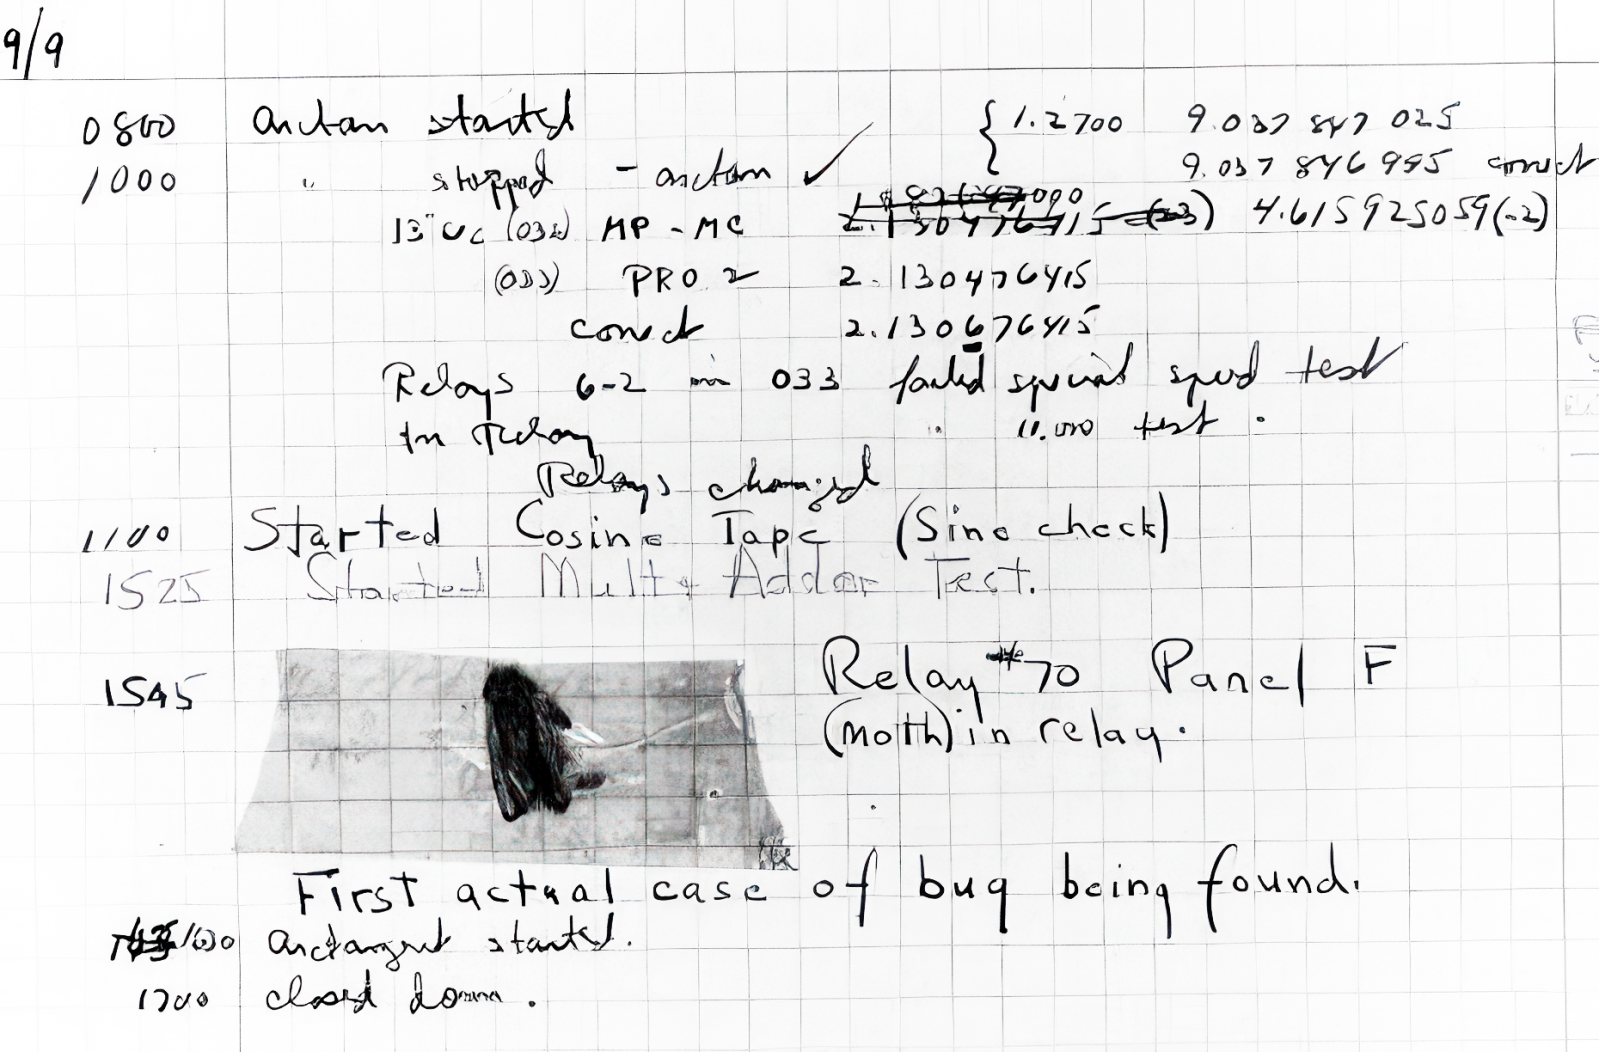 9/9
0800 arctan started { 1.2700 9.037 847 025
1000 " stopped - arctan ✓ 9.037 846 995 correct
13"uc (032) MP - MC 2.130476415 (-3) 4.615925059(-2)
(033) PRO 2 2.130476415
correct 2.130676415
Relays 6-2 in 033 failed special speed test
In Relay " 11.000 test .
Relays changed
1100 Started Cosine Tape (Sine check)
1525 Started Mult+Adder Test.
1545 Relay #70 Panel F
(moth) in relay.
First actual case of bug being found.
1630 arctangent started.
1700 closed down .